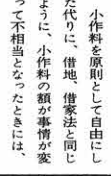 小作料を原則として自由にし
た代りに、借地、借家法と同じ
ように、小作料の額が事情が変
って不相当となったときには、